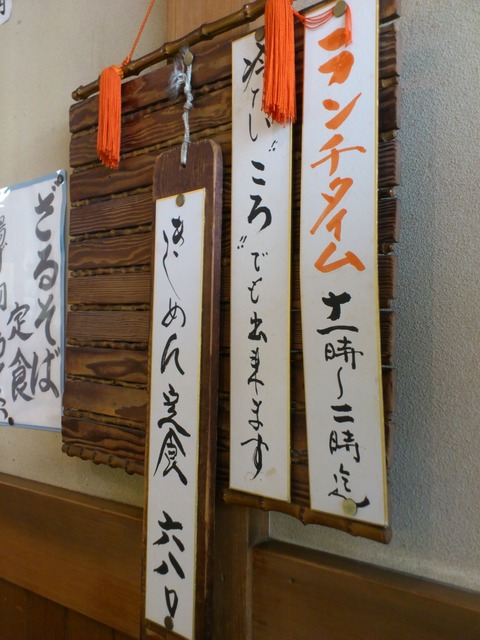 ランチタイム 十一時〜二時迄
冷たい"ころ"でも出来ます
きしめん定食 六八〇
ざるそば
定食